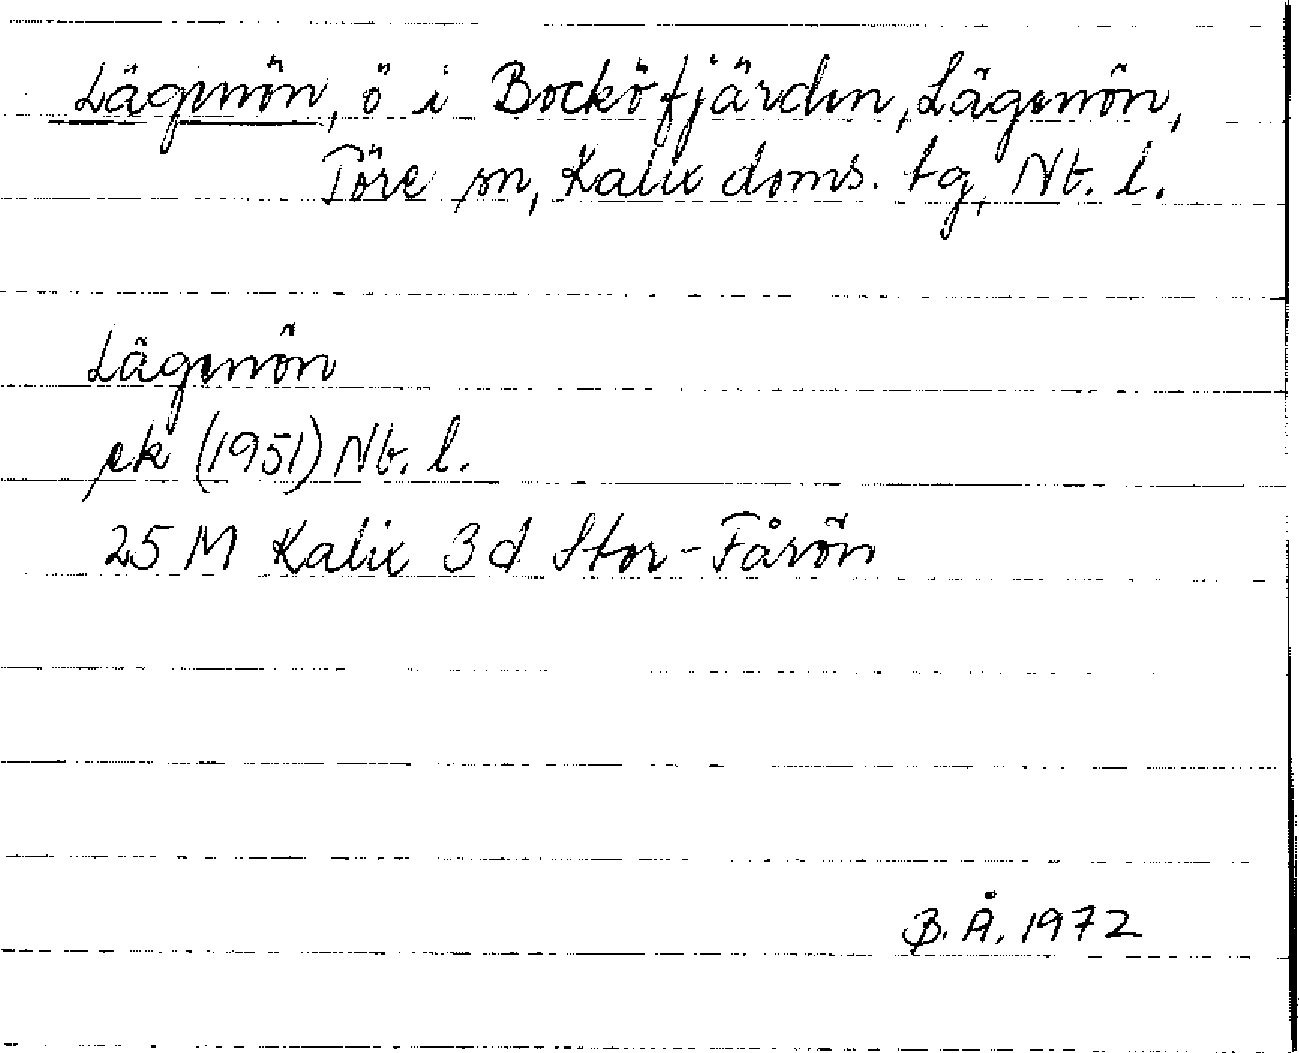 Lägenön, ö i Bocköfjärden, Lägenön,
Töre sn, Kalix doms. tg, Nb. l.
Lägenön
ek (1951) Nb. l.
25 M Kalix 3d Stor-Fårön
B. Å. 1972